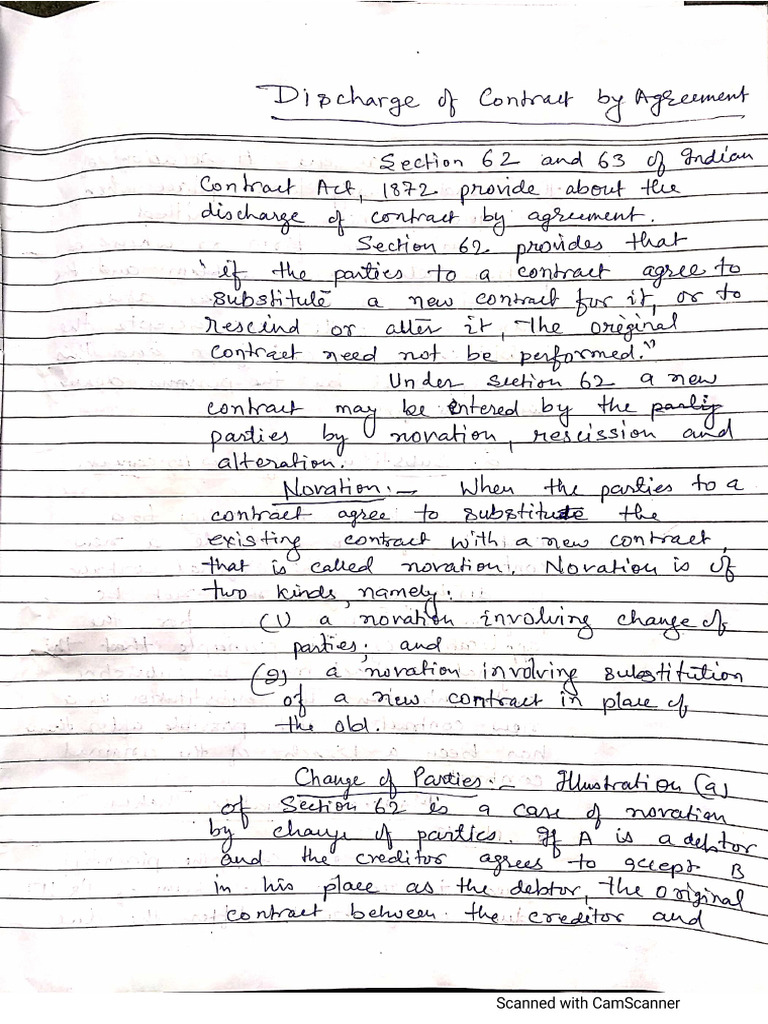 Discharge of Contract by Agreement
Section 62 and 63 of Indian
Contract Act, 1872 provide about the
discharge of contract by agreement.
Section 62 provides that
"if the parties to a contract agree to
substitute a new contract for it, or to
rescind or alter it, the original
contract need not be performed."
Under section 62 a new
contract may be entered by the
parties by novation, rescission and
alteration.
Novation:- When the parties to a
contract agree to substitute the
existing contract with a new contract,
that is called novation. Novation is of
two kinds, namely:
(1) a novation involving change of
parties; and
(2) a novation involving substitution
of a new contract in place of
the old.
Change of Parties:- Illustration (a)
of Section 62 is a case of novation
by change of parties. If A is a debtor
and the creditor agrees to accept B
in his place as the debtor, the original
contract between the creditor and
Scanned with CamScanner